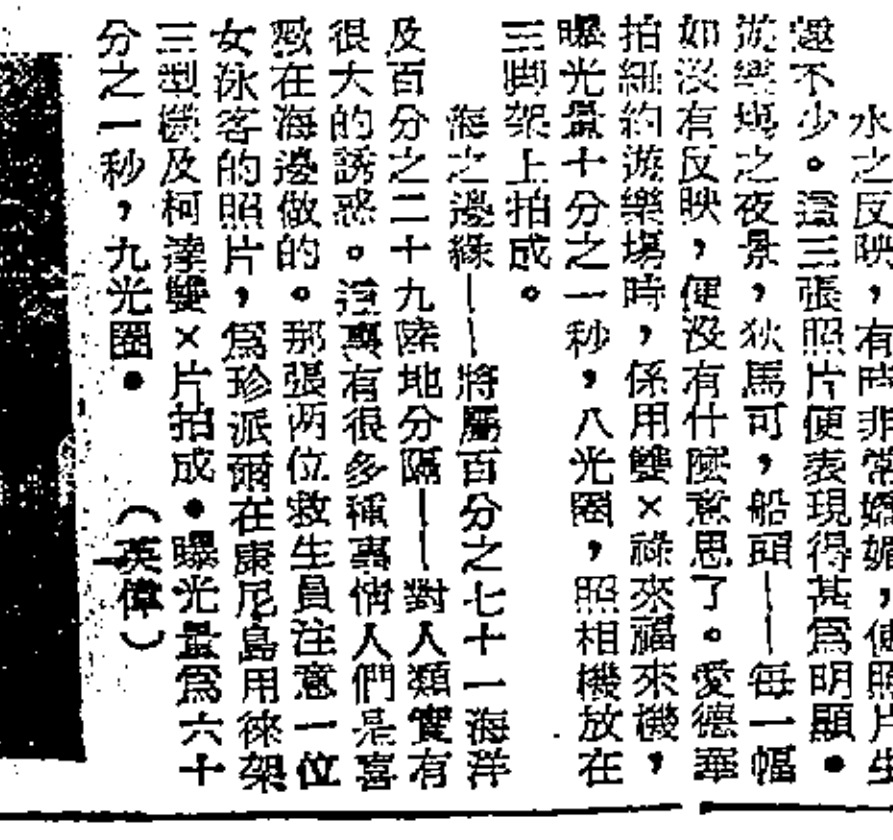 水之反映，有時非常嬌媚，使照片生
趣不少。這三張照片便表現得甚爲明顯。
遊樂塲之夜景，狄馬可，船頭——每一幅
如沒有反映，便沒有什麼意思了。愛德華
拍紐約遊樂場時，係用雙×祿來福來機，
曝光量十分之一秒，八光圈，照相機放在
三脚架上拍成。
海之邊緣——將屬百分之七十一海洋
及百分之二十九陸地分隔——對人類實有
很大的誘惑。這裏有很多種事情人們是喜
歡在海邊做的。那張两位救生員注意一位
女泳客的照片，爲珍派爾在康尼島用徠架
三型機及柯達雙×片拍成。曝光量爲六十
分之一秒，九光圈。（英偉）